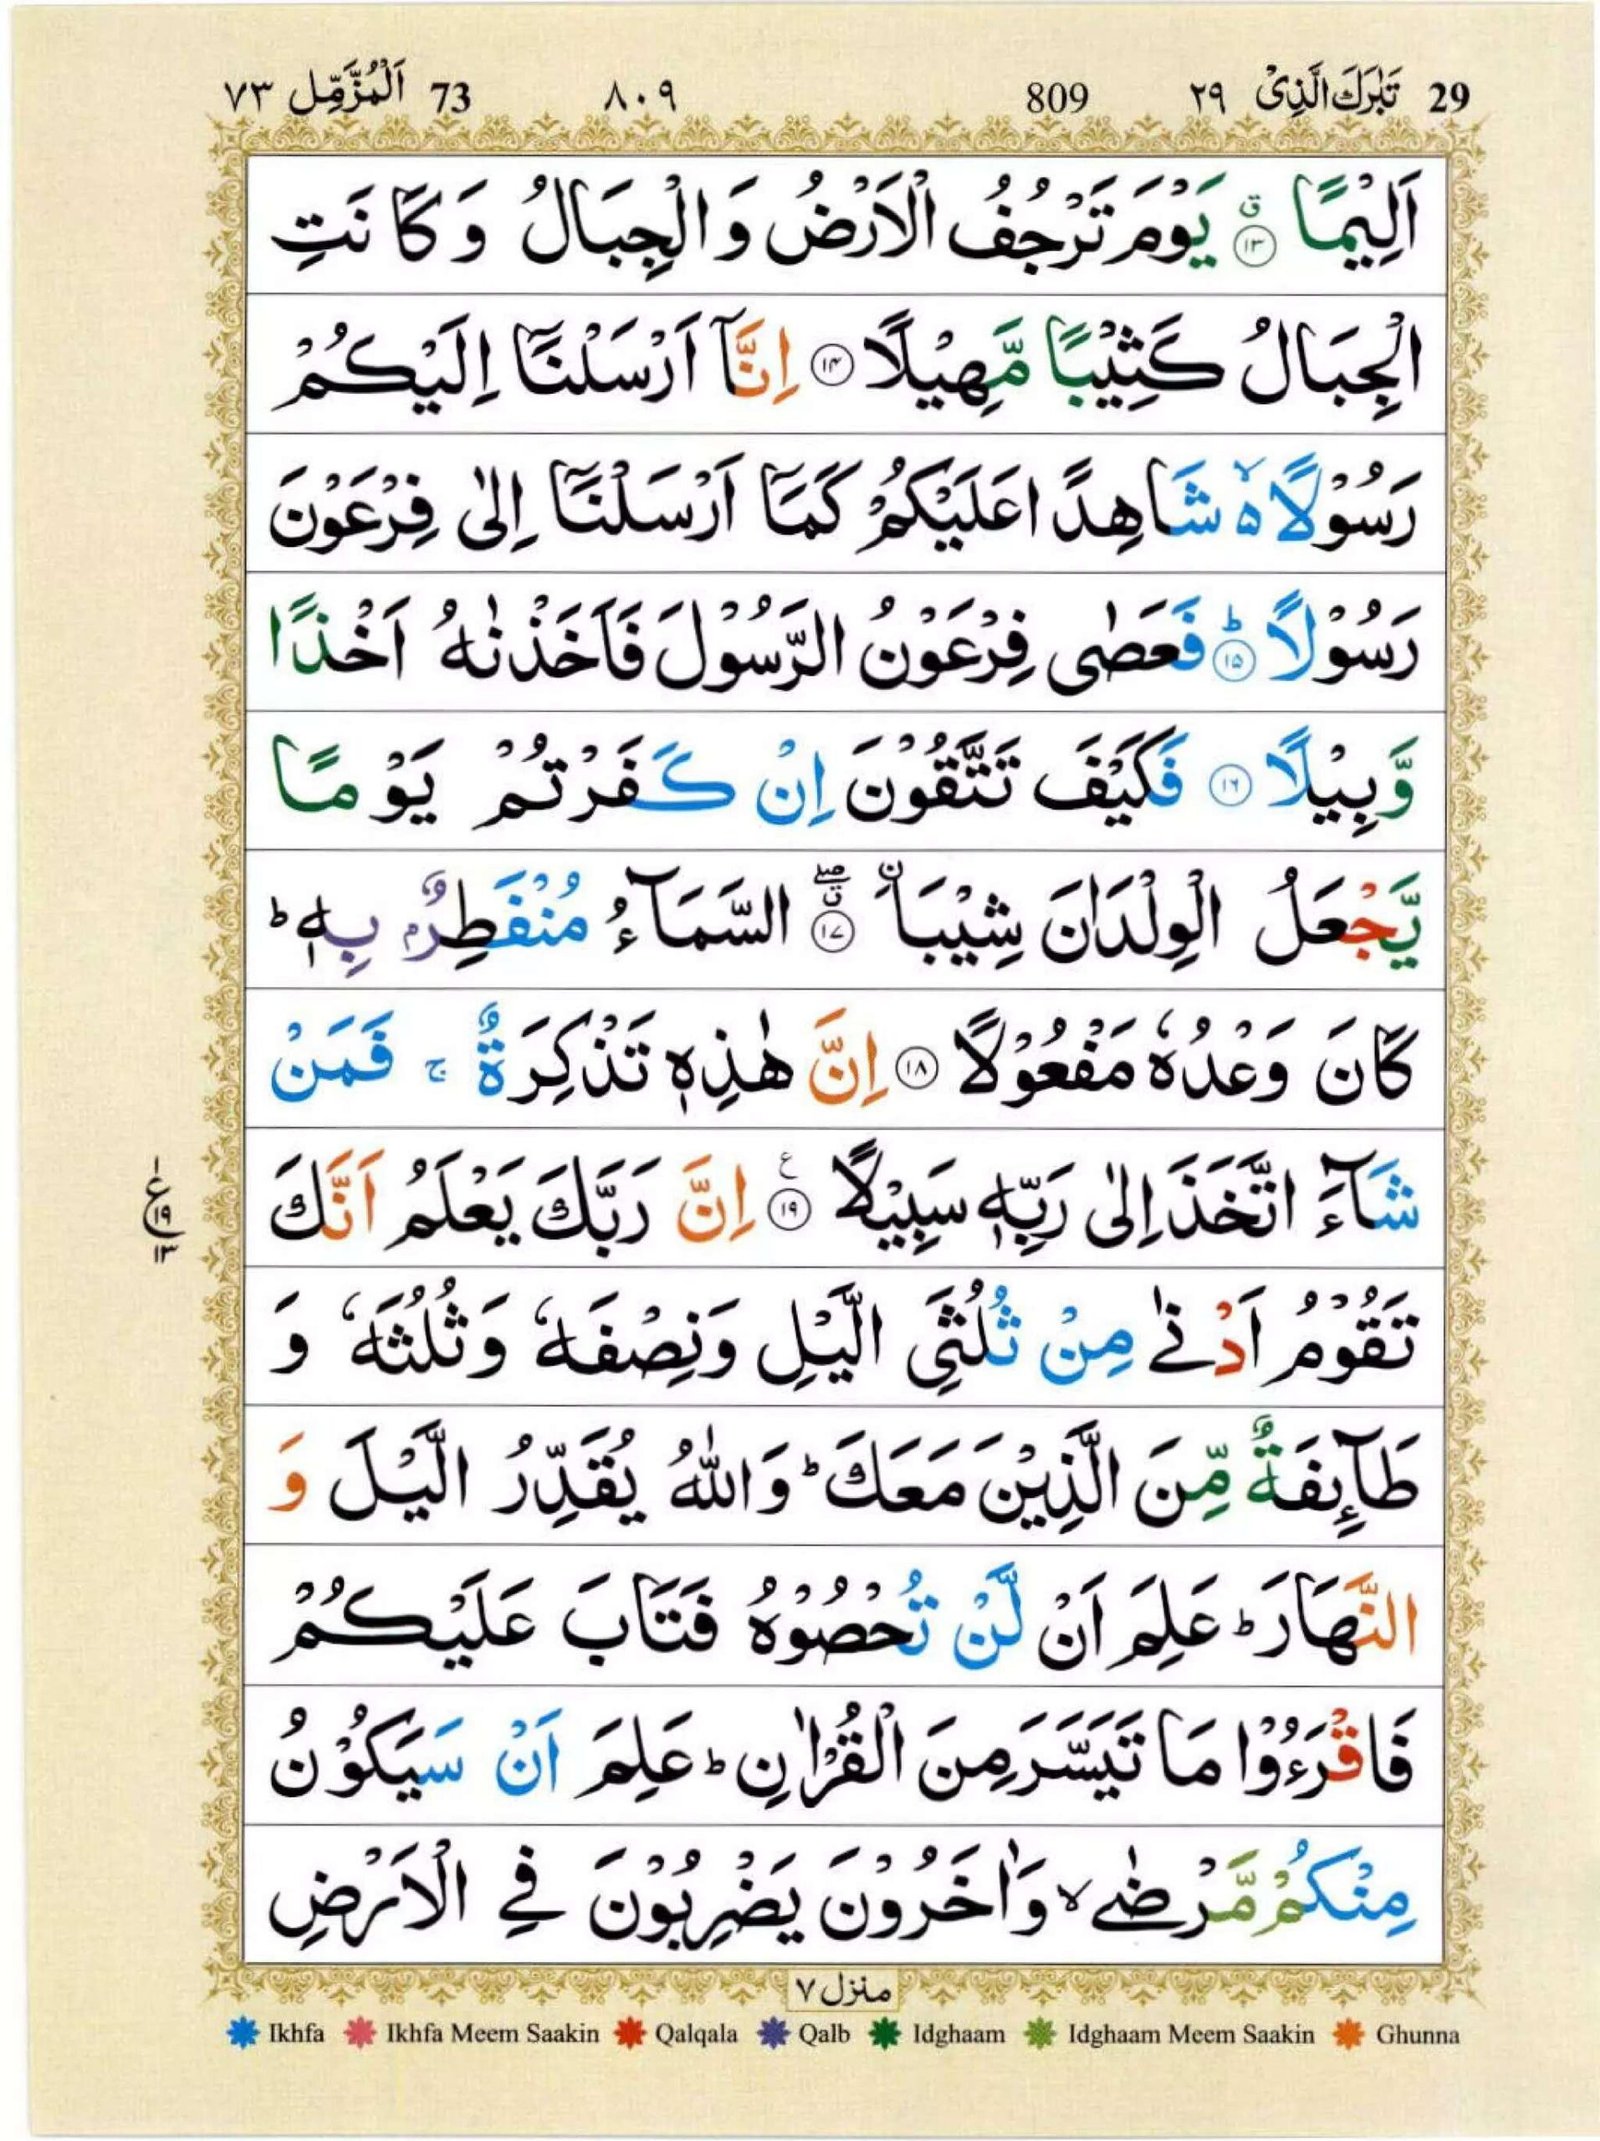 29 تَبٰرَكَ الَّذِیْ ٢٩ 809 ٨٠٩ 73 اَلْمُزَّمِّل ٧٣
اَلِیْمًا ۝١٣ ۙق یَوْمَ تَرْجُفُ الْاَرْضُ وَالْجِبَالُ وَكَانَتِ
الْجِبَالُ كَثِیْبًا مَّهِیْلًا ۝١٤ اِنَّاۤ اَرْسَلْنَاۤ اِلَیْكُمْ
رَسُوْلًا ۙ۬ شَاهِدًا عَلَیْكُمْ كَمَاۤ اَرْسَلْنَاۤ اِلٰی فِرْعَوْنَ
رَسُوْلًا ۝١٥ ؕ فَعَصٰی فِرْعَوْنُ الرَّسُوْلَ فَاَخَذْنٰهُ اَخْذًا
وَّبِیْلًا ۝١٦ فَكَیْفَ تَتَّقُوْنَ اِنْ كَفَرْتُمْ یَوْمًا
یَّجْعَلُ الْوِلْدَانَ شِیْبَا ۝١٧ ۖق ۨالسَّمَآءُ مُنْفَطِرٌۢ بِهٖ ؕ
كَانَ وَعْدُهٗ مَفْعُوْلًا ۝١٨ اِنَّ هٰذِهٖ تَذْكِرَةٌ ۚ فَمَنْ
شَآءَ اتَّخَذَ اِلٰی رَبِّهٖ سَبِیْلًا ۝١٩ ع اِنَّ رَبَّكَ یَعْلَمُ اَنَّكَ
١ ع ١٩ ١٣
تَقُوْمُ اَدْنٰی مِنْ ثُلُثَیِ الَّیْلِ وَنِصْفَهٗ وَثُلُثَهٗ وَ
طَآئِفَةٌ مِّنَ الَّذِیْنَ مَعَكَ ؕ وَاللّٰهُ یُقَدِّرُ الَّیْلَ وَ
النَّهَارَ ؕ عَلِمَ اَنْ لَّنْ تُحْصُوْهُ فَتَابَ عَلَیْكُمْ
فَاقْرَءُوْا مَا تَیَسَّرَ مِنَ الْقُرْاٰنِ ؕ عَلِمَ اَنْ سَیَكُوْنُ
مِنْكُمْ مَّرْضٰی ۙ وَاٰخَرُوْنَ یَضْرِبُوْنَ فِی الْاَرْضِ
منزل ٧
Ikhfa Ikhfa Meem Saakin Qalqala Qalb Idghaam Idghaam Meem Saakin Ghunna